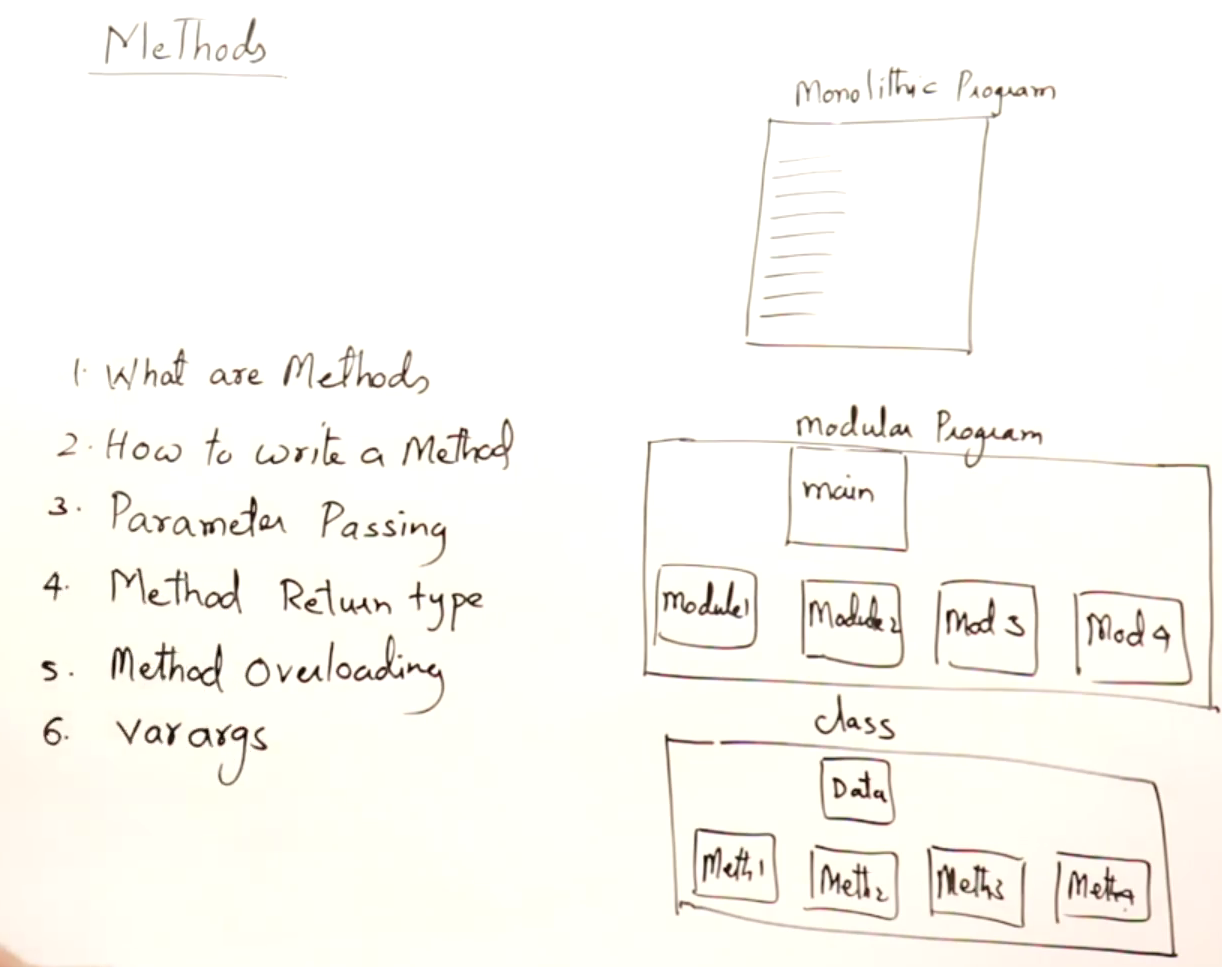 Methods
1. What are Methods
2. How to write a Method
3. Parameter Passing
4. Method Return type
5. Method Overloading
6. Varargs
Monolithic Program
Modular Program
main
Module1
Module2
Mod 3
Mod 4
class
Data
Meth1
Meth2
Meth3
Meth4